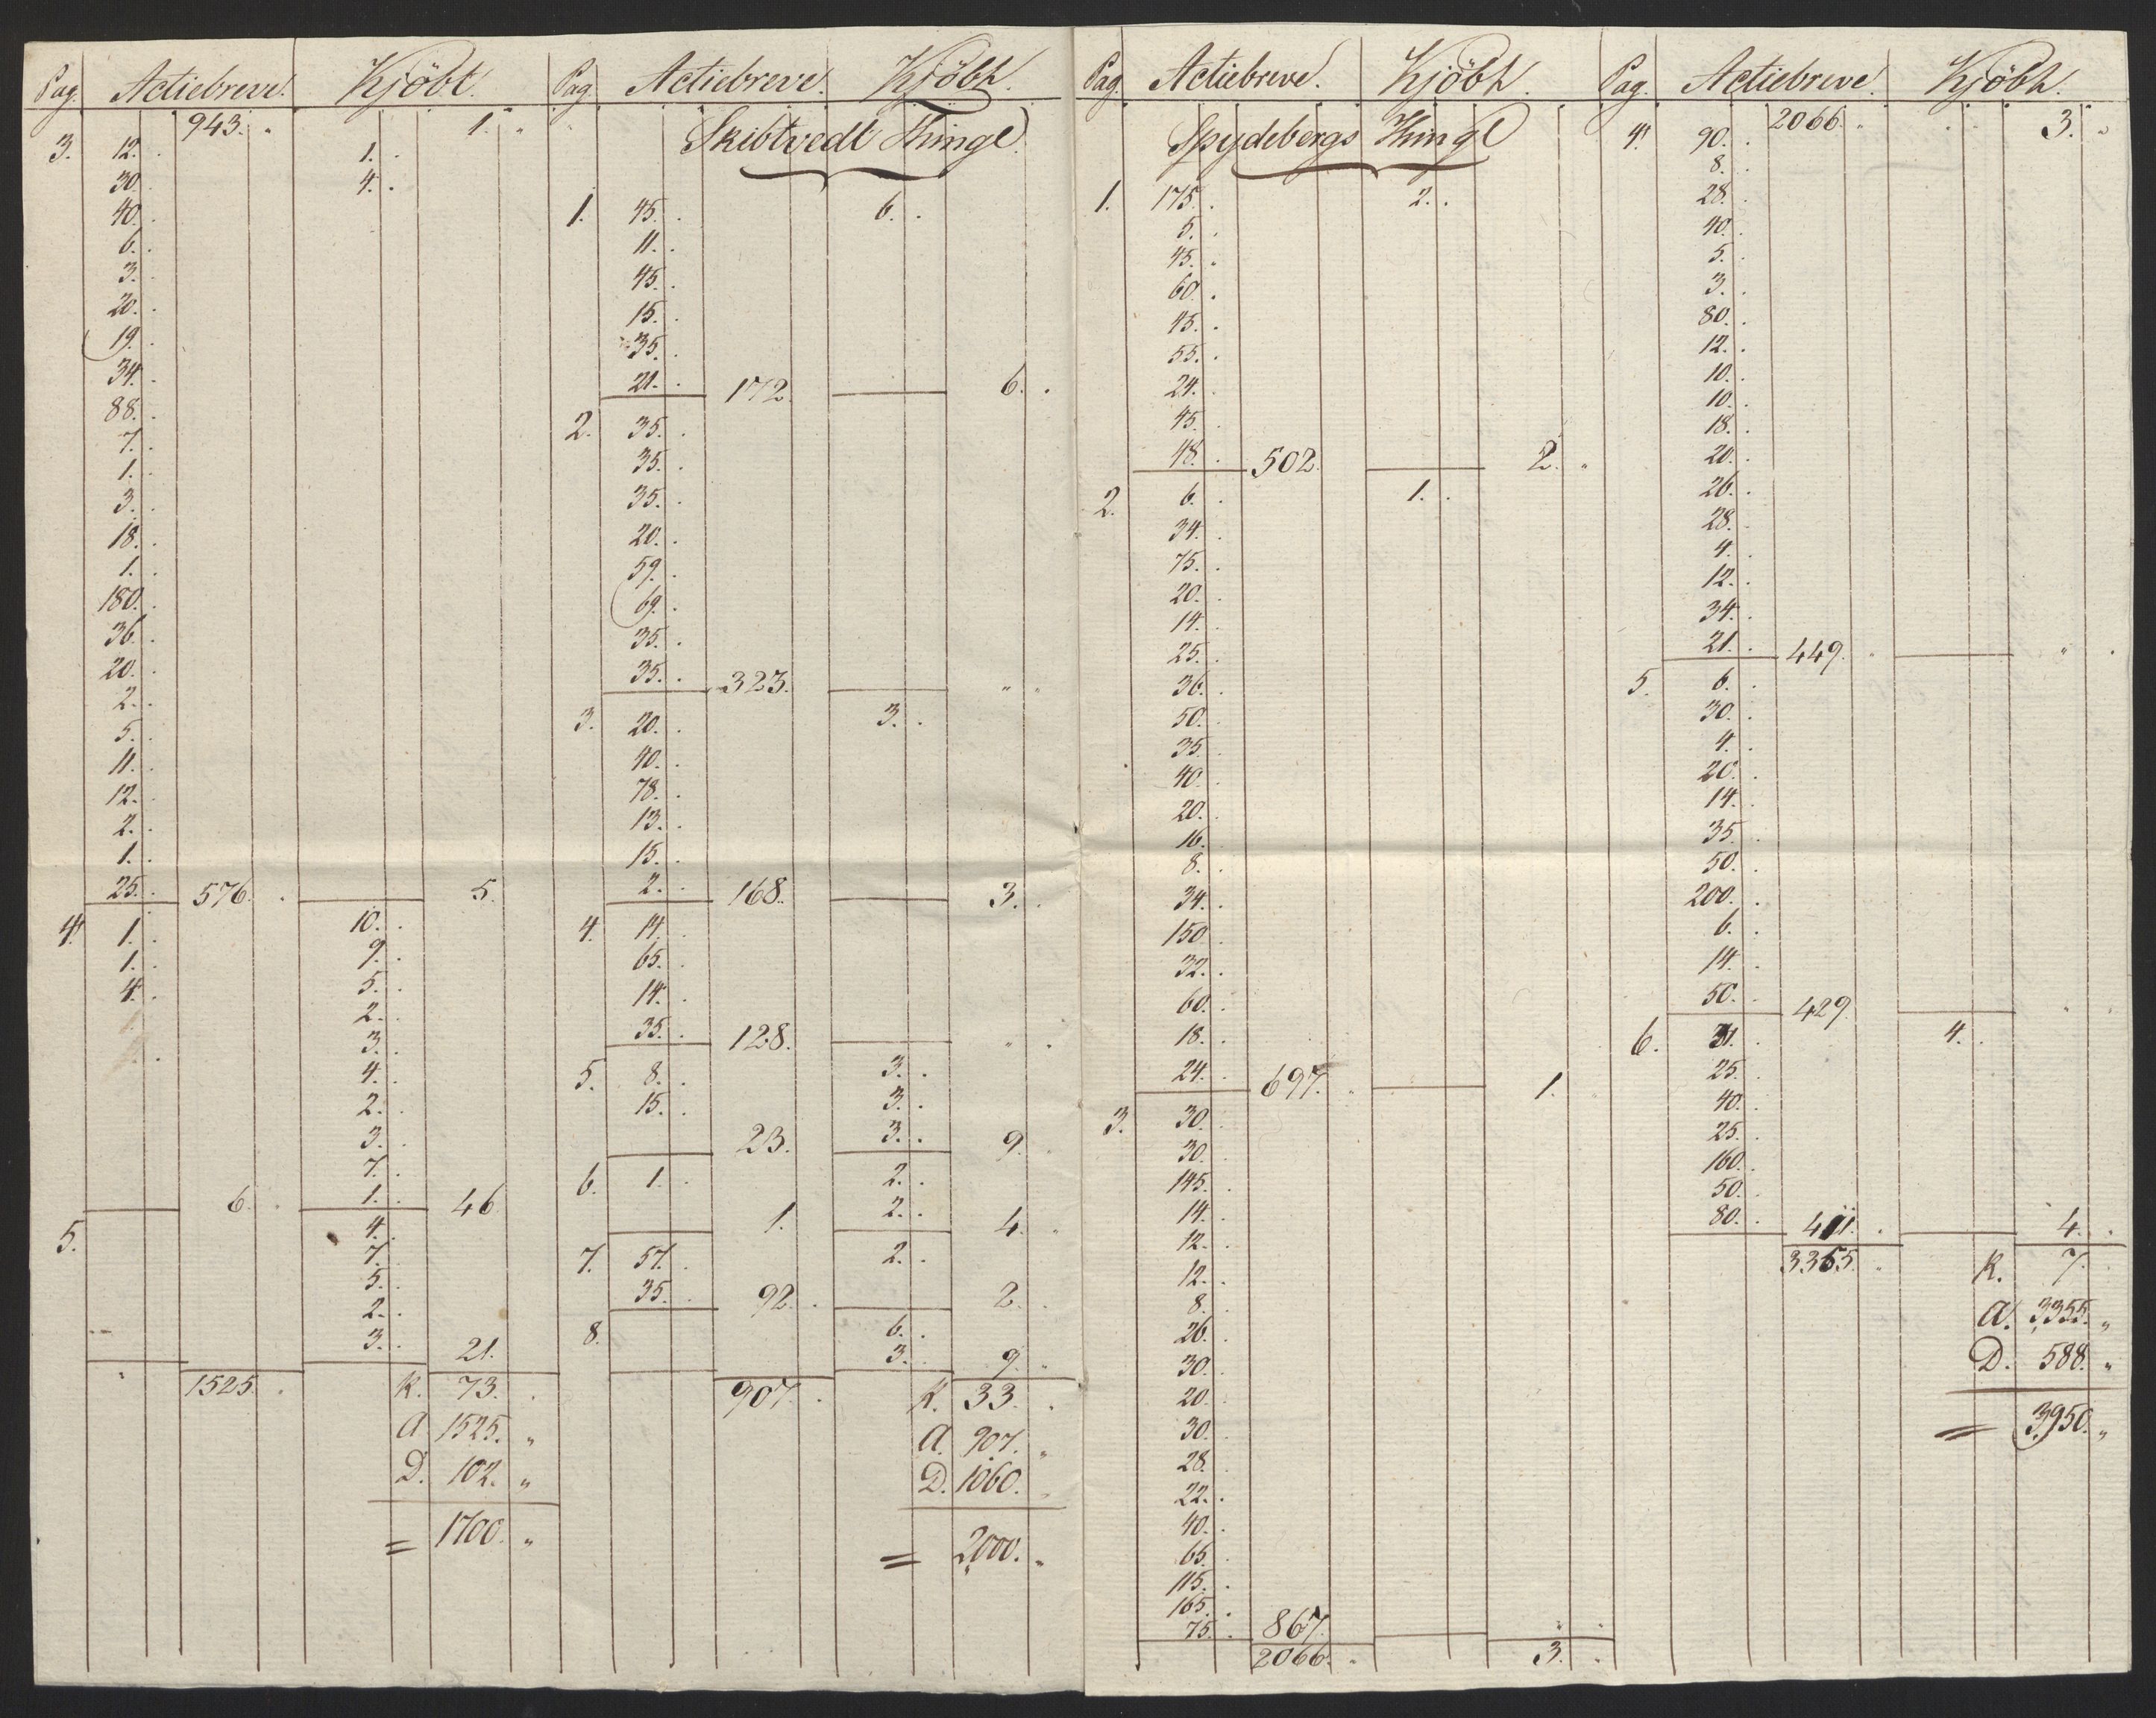 Pag. Actiebreve. Kjöbt.
943. 1.
3. 12. 1.
30. 4.
40.
6.
3.
20.
19.
34.
88.
7.
1.
3.
18.
1.
180.
36.
20.
2.
5.
11.
12.
2.
1.
25. 576. 5.
4. 1. 10.
1. 9.
4. 5.
2.
3.
4.
2.
3.
7.
6. 1. 46
5. 4.
7.
5.
2.
3. 21.
1525. K. 73.
A 1525. "
D. 102. "
= 1700. "
Pag. Actiebreve. Kjöbt.
Skibtvedt Thingl.
1. 45. 6.
11.
45.
15.
35.
21. 172. 6.
2. 35.
35.
35.
20.
59.
69.
35.
35. 323. " "
3. 20. 3.
40.
78.
13.
15.
2. 168. 3.
4. 14.
65.
14.
35. 128. "
5. 8. 3.
15. 3.
23. 3. 9.
6. 1. 2.
1. 2. 4.
7. 57. 2.
35. 92. 2.
8. 6.
3. 9.
907. K. 33.
A. 907. "
D. 1060. "
= 2000. "
Pag. Actiebreve. Kjöbt.
Spydebergs Thingl
1. 175. 2.
5.
45.
60.
45.
55.
24.
45.
48. 502. 2. "
2. 6. 1.
34.
75.
20.
14.
25.
36.
50.
35.
40.
20.
16.
8.
34.
150.
32.
60.
18.
24. 697. 1.
3. 30.
30.
145.
14.
12.
12.
8.
26.
30.
20.
30.
28.
22.
40.
65.
115.
165.
75. 867.
2066. 3.
Pag. Actiebreve. Kjöbt.
2066. 3. "
4. 90.
8.
28.
40.
5.
3.
80.
12.
10.
10.
18.
20.
26.
28.
4.
12.
34.
21. 449. "
5. 6.
30.
4.
20.
14.
35.
50.
200.
6.
14.
50. 429.
6. 31. 4.
25.
40.
25.
160.
50.
80. 411. 4.
3355. K. 7.
A. 3355. "
D. 588. "
= 3950. "